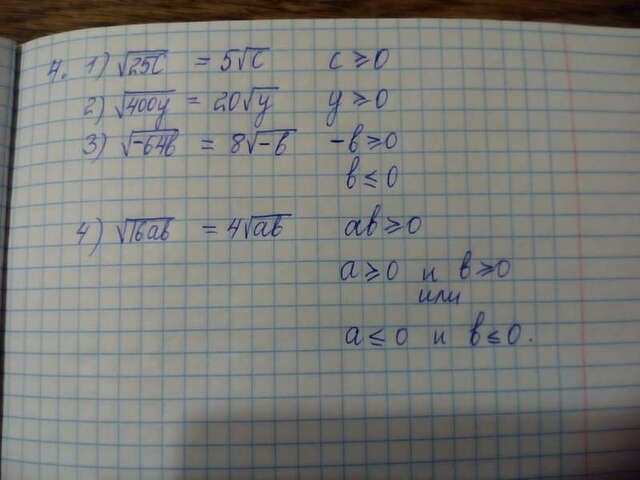 4. 1) √25c = 5√c c ≥ 0
2) √400y = 20√y y ≥ 0
3) √-64b = 8√-b -b ≥ 0
b ≤ 0
4) √16ab = 4√ab ab ≥ 0
a ≥ 0 и b ≥ 0
или
a ≤ 0 и b ≤ 0.